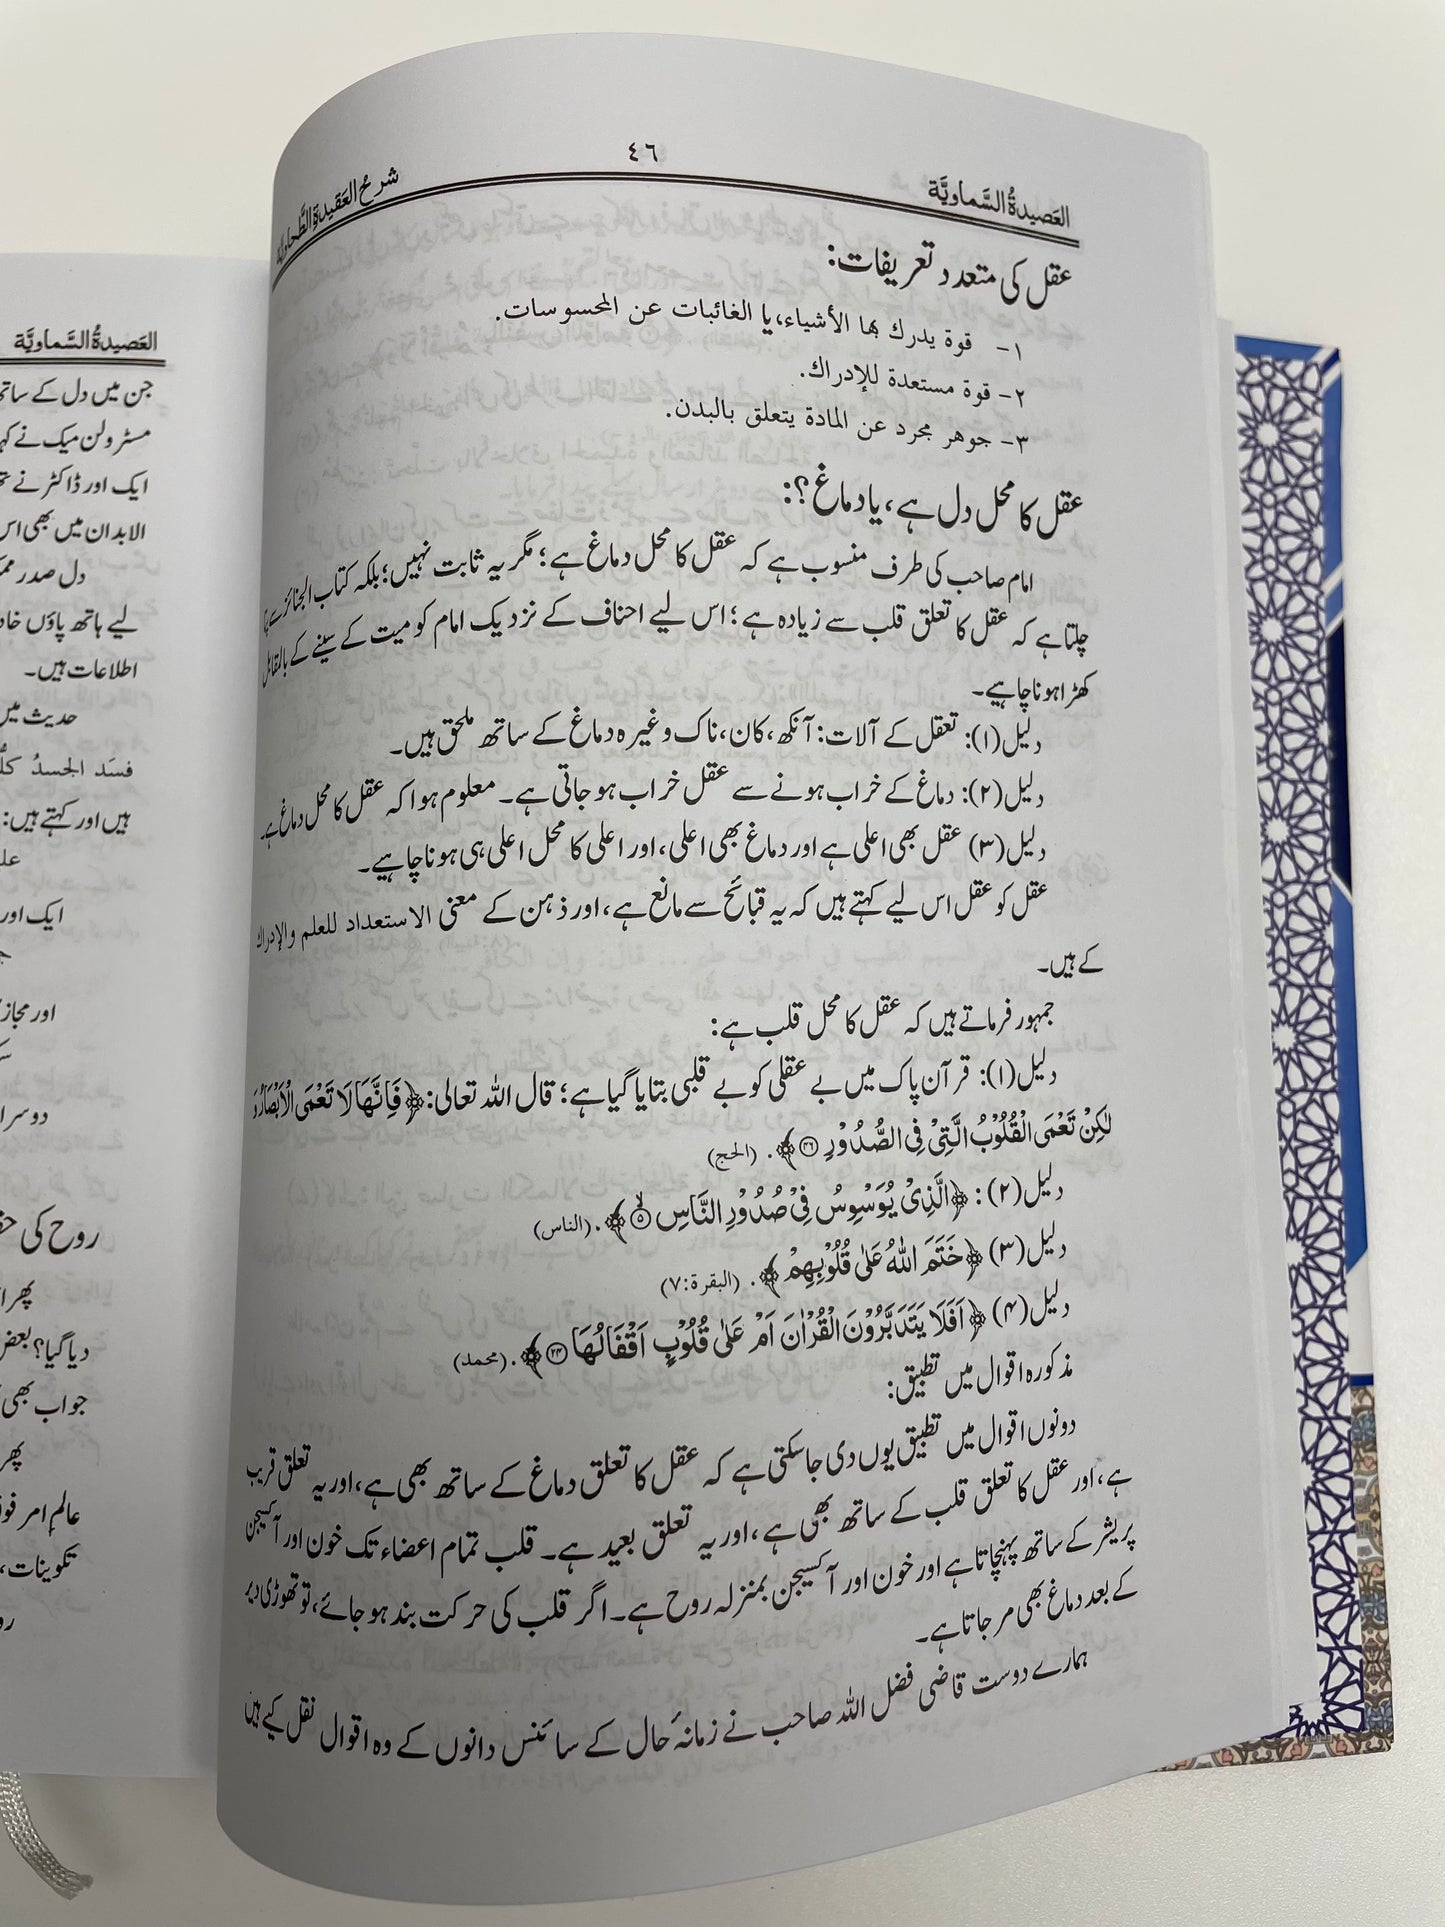 العَصيدةُ السَّماويَّة
٤٦
شرحُ العَقيدةِ الطَّحاويَّة
عقل کی متعدد تعریفات:
١- قوة يدرك بها الأشياء، یا الغائبات عن المحسوسات.
٢- قوة مستعدة للإدراك.
٣- جوهر مجرد عن المادة يتعلق بالبدن.
عقل کا محل دل ہے، یا دماغ؟:
امام صاحب کی طرف منسوب ہے کہ عقل کا محل دماغ ہے؛ مگر یہ ثابت نہیں؛ بلکہ کتاب الجنائز سے پتہ
چلتا ہے کہ عقل کا تعلق قلب سے زیادہ ہے؛ اس لیے احناف کے نزدیک امام کو میت کے سینے کے بالمقابل
کھڑا ہونا چاہیے۔
دلیل (۱): تعقل کے آلات: آنکھ، کان، ناک وغیرہ دماغ کے ساتھ ملحق ہیں۔
دلیل (۲): دماغ کے خراب ہونے سے عقل خراب ہو جاتی ہے۔ معلوم ہوا کہ عقل کا محل دماغ ہے۔
دلیل (۳) عقل بھی اعلی ہے اور دماغ بھی اعلی، اور اعلی کا محل اعلی ہی ہونا چاہیے۔
عقل کو عقل اس لیے کہتے ہیں کہ یہ قبائح سے مانع ہے، اور ذہن کے معنی الاستعداد للعلم والإدراك
کے ہیں۔
جمہور فرماتے ہیں کہ عقل کا محل قلب ہے:
دلیل (۱): قرآن پاک میں بے عقلی کو بے قلبی بتایا گیا ہے؛ قال اللہ تعالی: ﴿فَاِنَّهَا لَا تَعْمَى الْاَبْصَارُ وَ
لٰكِنْ تَعْمَى الْقُلُوْبُ الَّتِيْ فِي الصُّدُوْرِ ۴۶﴾. (الحج)
دلیل (۲): ﴿الَّذِيْ يُوَسْوِسُ فِيْ صُدُوْرِ النَّاسِ ۵﴾. (الناس)
دلیل (۳) ﴿خَتَمَ اللّٰهُ عَلٰى قُلُوْبِهِمْ﴾. (البقرة:٧)
دلیل (۴) ﴿اَفَلَا يَتَدَبَّرُوْنَ الْقُرْاٰنَ اَمْ عَلٰى قُلُوْبٍ اَقْفَالُهَا ۲۴﴾. (محمد)
مذکورہ اقوال میں تطبیق:
دونوں اقوال میں تطبیق یوں دی جاسکتی ہے کہ عقل کا تعلق دماغ کے ساتھ بھی ہے، اور یہ تعلق قریب
ہے، اور عقل کا تعلق قلب کے ساتھ بھی ہے، اور یہ تعلق بعید ہے۔ قلب تمام اعضاء تک خون اور آکسیجن
پریشر کے ساتھ پہنچاتا ہے اور خون اور آکسیجن بمنزلہ روح ہے۔ اگر قلب کی حرکت بند ہو جائے، تو تھوڑی دیر
کے بعد دماغ بھی مر جاتا ہے۔
ہمارے دوست قاضی فضل اللہ صاحب نے زمانۂ حال کے سائنس دانوں کے وہ اقوال نقل کیے ہیں
العَصيدةُ السَّماويَّة
جن میں دل کے ساتھ
مسٹر ولن میک نے
ایک اور ڈاکٹر نے
الابدان میں بھی اس
دل صدر
لیے ہاتھ پاؤں
اطلاعات ہیں۔
حدیث میں
فسَد الجسدُ
ہیں اور کہتے ہیں:
ایک اور
اور مجاز
دوسرا
روح کی
پھر
دیا گیا؟ بعض
جواب بھی
پھر
عالم امر
تکوینات،